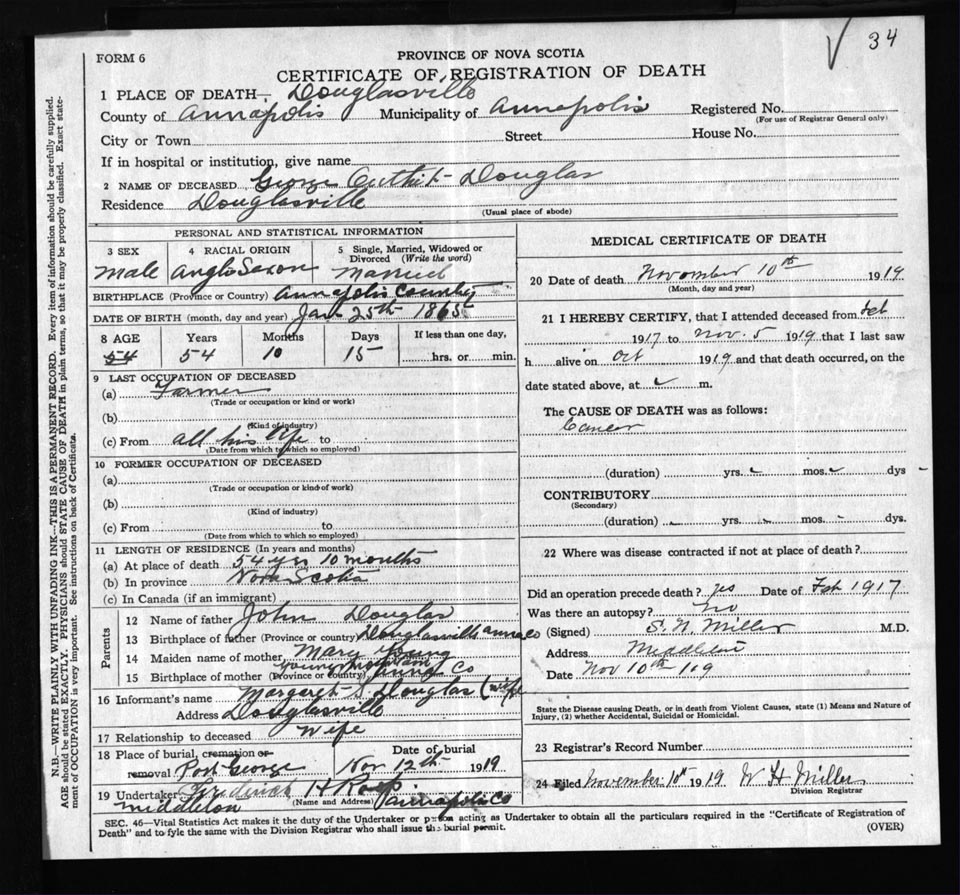 34
FORM 6
PROVINCE OF NOVA SCOTIA
CERTIFICATE OF REGISTRATION OF DEATH
1 PLACE OF DEATH— Douglasville
County of Annapolis Municipality of Annapolis Registered No.
(For use of Registrar General only)
City or Town Street House No.
If in hospital or institution, give name
2 NAME OF DECEASED George Outhit Douglas
Residence Douglasville
(Usual place of abode)
PERSONAL AND STATISTICAL INFORMATION
3 SEX 4 RACIAL ORIGIN 5 Single, Married, Widowed or Divorced (Write the word)
Male Anglo Saxon Married
BIRTHPLACE (Province or Country) Annapolis County
DATE OF BIRTH (month, day and year) Jan 25th 1865
8 AGE Years Months Days If less than one day,
54 54 10 15 hrs. or min.
9 LAST OCCUPATION OF DECEASED
(a) Farmer
(Trade or occupation or kind or work)
(b)
(Kind of industry)
(c) From all his life to
(Date from which to which so employed)
10 FORMER OCCUPATION OF DECEASED
(a)
(Trade or occupation or kind of work)
(b)
(Kind of industry)
(c) From to
(Date from which to which so employed)
11 LENGTH OF RESIDENCE (In years and months)
(a) At place of death 54 yrs 10 months
(b) In province Nova Scotia
(c) In Canada (if an immigrant)
Parents
12 Name of father John Douglas
13 Birthplace of father (Province or country) Douglasville Anna Co
14 Maiden name of mother Mary Young
15 Birthplace of mother (Province or country) Young Mountain Anna Co
16 Informant's name Margaret S Douglas (wife
Address Douglasville
17 Relationship to deceased Wife
18 Place of burial, cremation or removal Port George Date of burial Nov 12th 1919
19 Undertaker Frederick H
(Name and Address) Middleton Annapolis Co
MEDICAL CERTIFICATE OF DEATH
20 Date of death November 10th 1919
(Month, day and year)
21 I HEREBY CERTIFY, that I attended deceased from Feb
1917 to Nov. 5 1919 that I last saw
h alive on Oct 1919 and that death occurred, on the
date stated above, at m.
The CAUSE OF DEATH was as follows:
Cancer
(duration) yrs. mos. dys
CONTRIBUTORY
(Secondary)
(duration) yrs. mos. dys.
22 Where was disease contracted if not at place of death?
Did an operation precede death? yes Date of Feb 1917
Was there an autopsy? No
(Signed) S. N. Miller M.D.
Address Middleton
Date Nov 10th 1919
State the Disease causing Death, or in death from Violent Causes, state (1) Means and Nature of
Injury, (2) whether Accidental, Suicidal or Homicidal.
23 Registrar's Record Number
24 Filed November 10th 1919 W H Miller
Division Registrar
SEC. 46—Vital Statistics Act makes it the duty of the Undertaker or person acting as Undertaker to obtain all the particulars required in the "Certificate of Registration of
Death" and to fyle the same with the Division Registrar who shall issue the burial permit.
(OVER)
N.B.—WRITE PLAINLY WITH UNFADING INK—THIS IS A PERMANENT RECORD. Every item of information should be carefully supplied.
AGE should be stated EXACTLY. PHYSICIANS should STATE CAUSE OF DEATH in plain terms, so that it may be properly classified. Exact statement of OCCUPATION is very important. See instructions on back of Certificate.